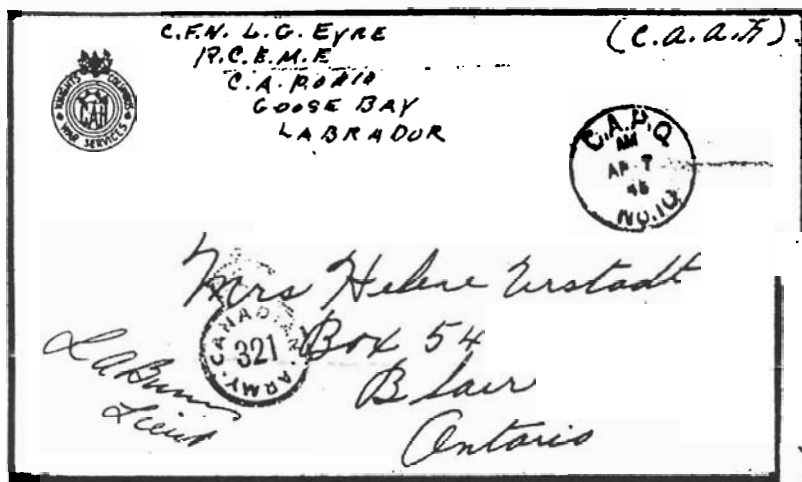 C.F.N. L.G. EYRE
R.C.E.M.E
C.A.P.O #10
GOOSE BAY
LABRADOR
(C.A.A.F.)
KNIGHTS OF COLUMBUS
CAH
WAR SERVICES
C.A.P.O
AM
AP 7
45
NO.10
Mrs Helene
Box 54
Blair
Ontario
CANADIAN
321
ARMY
Lieut